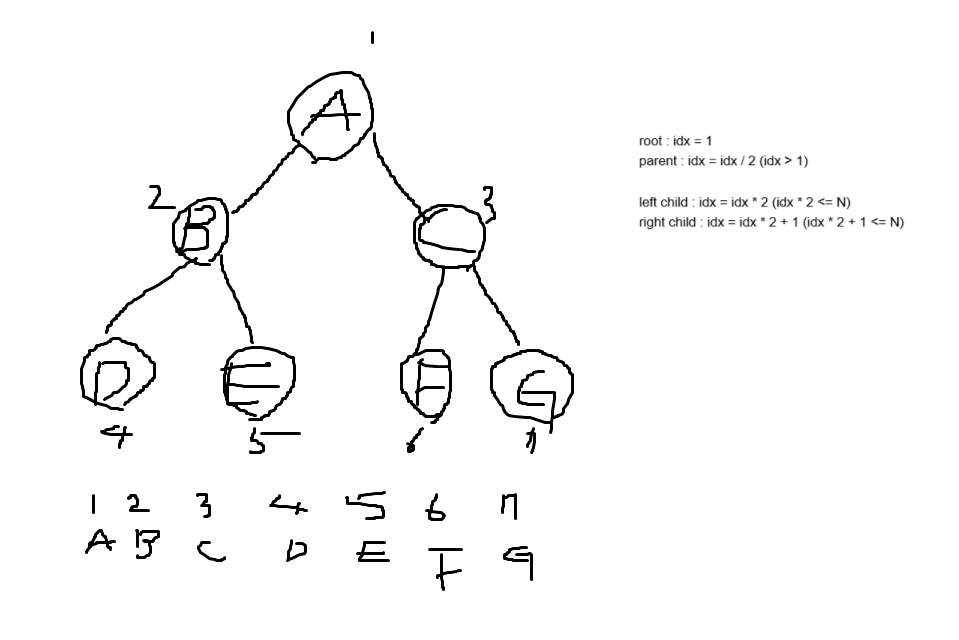 1
A
2
B
3
C
D
E
F
G
4
5
6
7
1 2 3 4 5 6 7
A B C D E F G
root : idx = 1
parent : idx = idx / 2 (idx > 1)
left child : idx = idx * 2 (idx * 2 <= N)
right child : idx = idx * 2 + 1 (idx * 2 + 1 <= N)